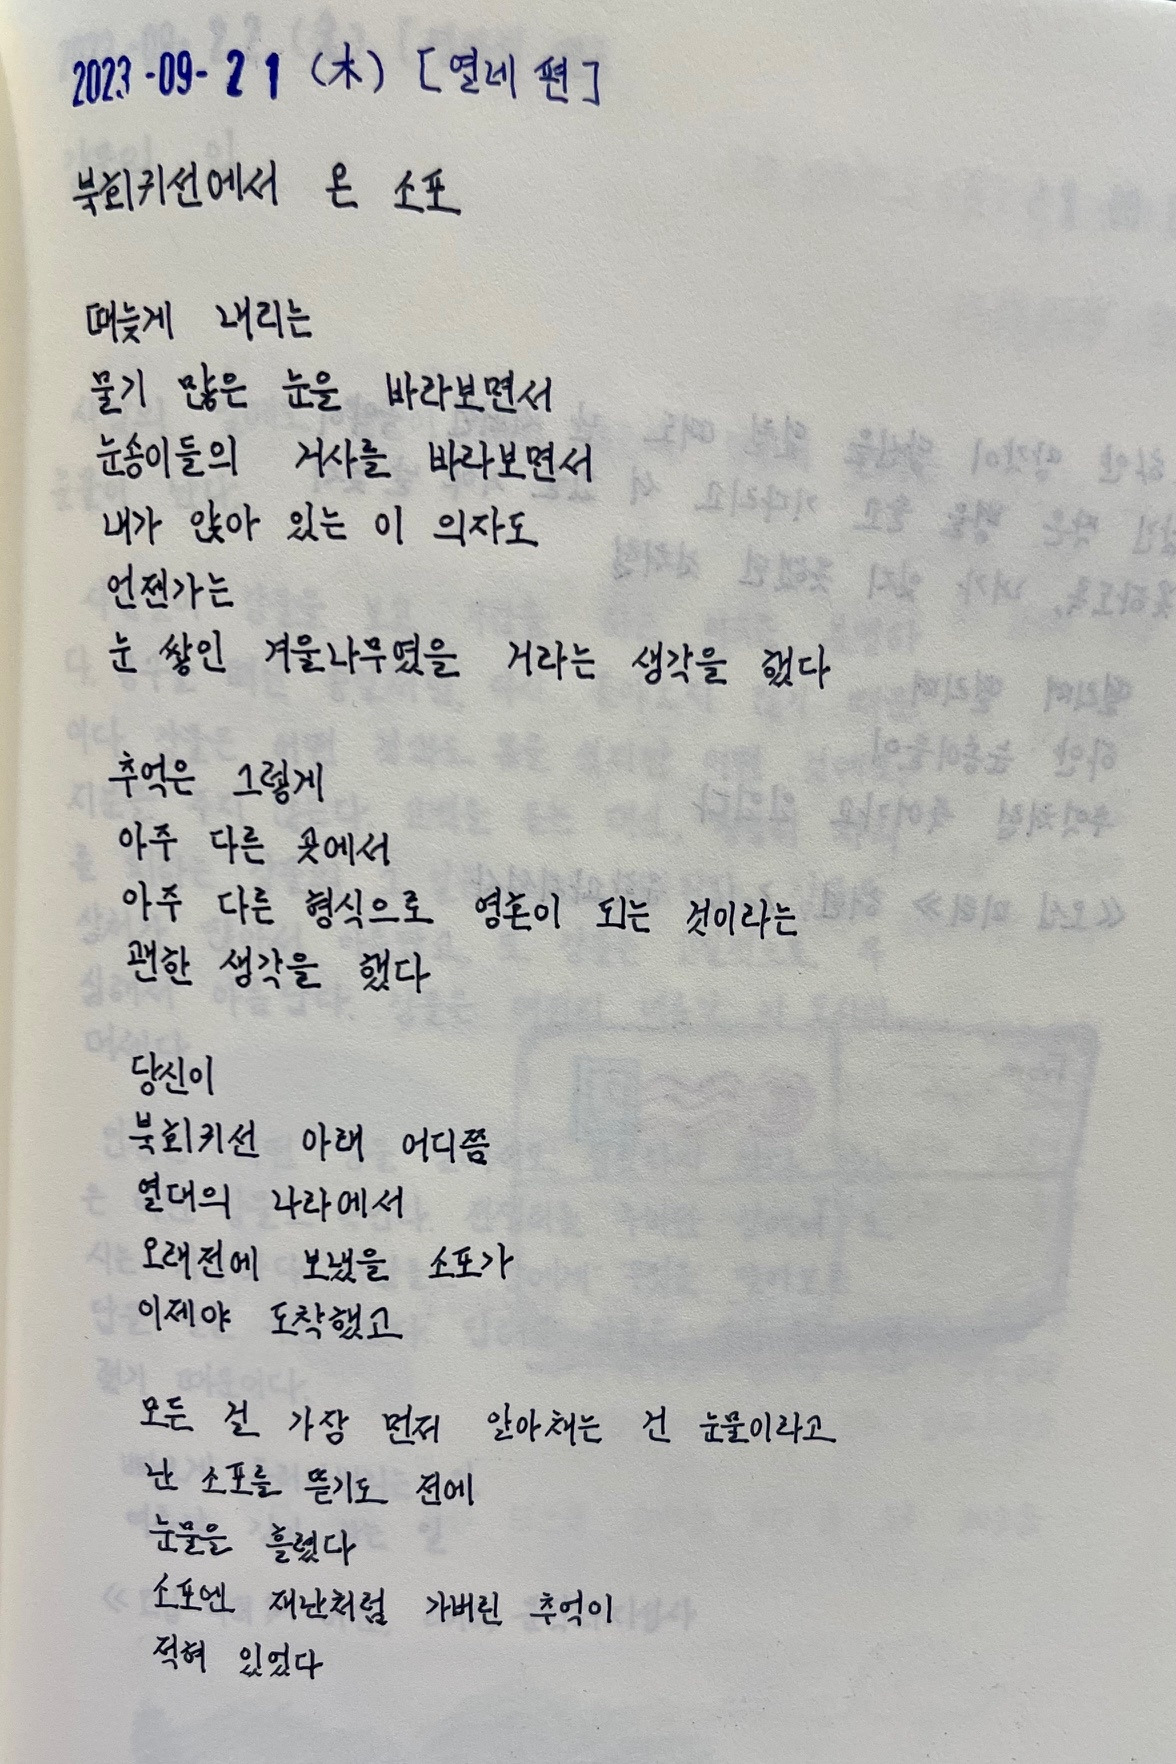 2023-09-21 (木) [열네 편]
북회귀선에서 온 소포
때늦게 내리는
물기 많은 눈을 바라보면서
눈송이들의 거사를 바라보면서
내가 앉아 있는 이 의자도
언젠가는
눈 쌓인 겨울나무였을 거라는 생각을 했다
추억은 그렇게
아주 다른 곳에서
아주 다른 형식으로 영혼이 되는 것이라는
괜한 생각을 했다
당신이
북회귀선 아래 어디쯤
열대의 나라에서
오래전에 보냈을 소포가
이제야 도착했고
모든 걸 가장 먼저 알아채는 건 눈물이라고
난 소포를 뜯기도 전에
눈물을 흘렸다
소포엔 재난처럼 가버린 추억이
적혀 있었다